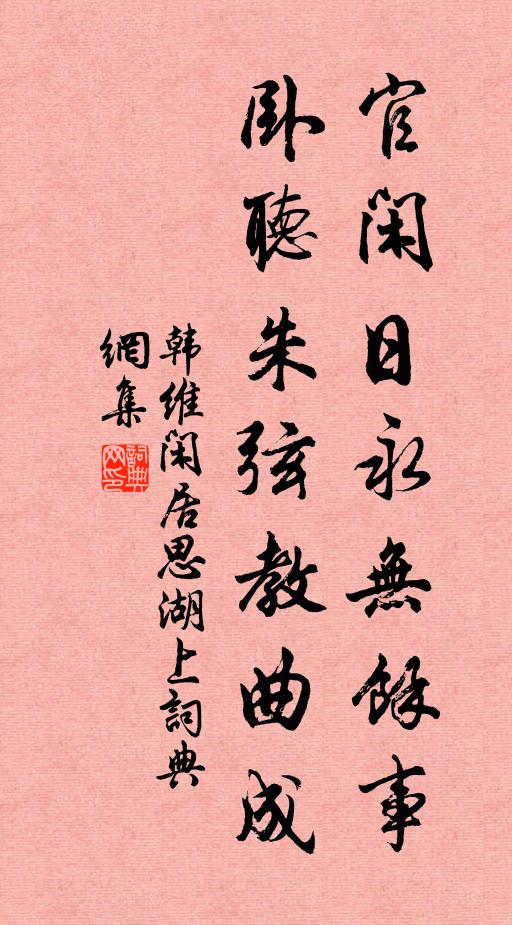 官闲日永無餘事
卧聴朱弦教曲成
韩维闲居思湖上詞典
網集
詞典
网印